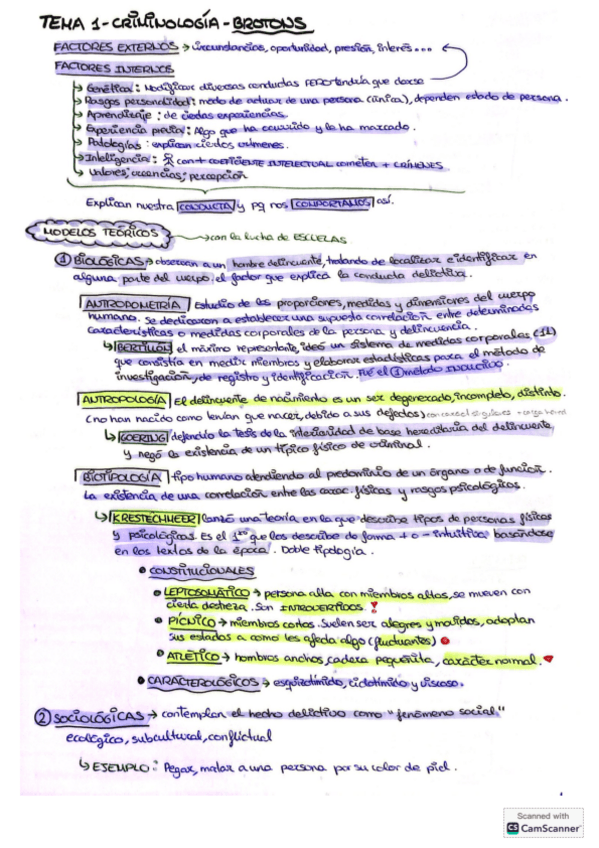 TEMA 1 - CRIMINOLOGÍA - BROTONS
FACTORES EXTERNOS → circunstancias, oportunidad, presión, interés...
FACTORES INTERNOS
↳ Genética: Modificar diversas conductas PERO tendría que darse
↳ Rasgos personalidad: modo de actuar de una persona (única), dependen estado de persona.
↳ Aprendizaje: de ciertas experiencias.
↳ Experiencia previa: Algo que ha ocurrido y le ha marcado.
↳ Patologías: explican ciertos crímenes.
↳ Inteligencia: con + COEFICIENTE INTELECTUAL cometen + CRÍMENES
↳ Valores, creencias, percepción
Explican nuestra CONDUCTA y pq nos COMPORTAMOS así.
MODELOS TEÓRICOS → con la lucha de ESCUELAS
① BIOLÓGICAS → observan a un hombre delincuente, tratando de localizar e identificar en
alguna parte del cuerpo, el factor que explica la conducta delictiva.
ANTROPOMETRÍA Estudio de las proporciones, medidas y dimensiones del cuerpo
humano. Se dedicaron a establecer una supuesta correlación entre determinadas
características o medidas corporales de la persona y delincuencia.
↳ BERTILLÓN el máximo representante, ideó un sistema de medidas corporales (11)
que consistía en medir miembros y elaborar estadísticas para el método de
investigación, de registro y identificación. Fue el ① método evolutivo.
ANTROPOLOGÍA El delincuente de nacimiento es un ser degenerado, incompleto, distinto.
(no han nacido como tenían que nacer, debido a sus defectos)
↳ GOERING defendió la tesis de la inferioridad de base hereditaria del delincuente,
y negó la existencia de un típico físico de criminal.
BIOTIPOLOGÍA tipo humano atendiendo al predominio de un órgano o de función.
La existencia de una correlación entre las carac. físicas y rasgos psicológicos.
↳ KRESTECHMEER lanzó una teoría en la que describe tipos de personas físicas
y psicológicas. Es el 1ero que los describe de forma + o - intuitiva, basándose
en los textos de la época. Doble tipología.
• CONSTITUCIONALES
• LEPTOSOMÁTICO → persona alta con miembros altos, se mueven con
cierta destreza. Son INTROVERTIDOS.
• PÍCNICO → miembros cortos. Suelen ser alegres y movidos, adoptan
sus estados a como les afecta algo (fluctuantes)
• ATLÉTICO → hombros anchos, cadera pequeñita, carácter normal.
• CARACTEROLÓGICOS → esquizotímido, ciclotímido y viscoso.
② SOCIOLÓGICAS → contemplan el hecho delictivo como "fenómeno social."
ecológico, subcultural, conflictual
↳ EJEMPLO: Pegar, matar a una persona por su color de piel.
Scanned with
CS CamScanner